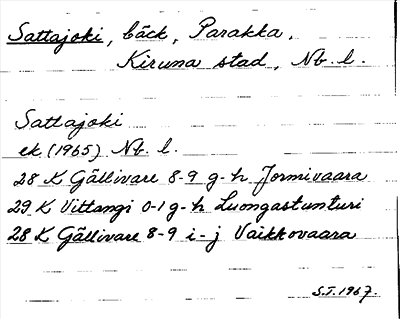 Sattajoki, bäck, Parakka,
Kiruna stad, Nb. l.
Sattajoki
ek. (1965) Nb. l.
28 K Gällivare 8-9 g-h Jormivaara
29 K Vittangi 0-1 g-h Luongastunturi
28 K Gällivare 8-9 i-j Vaikkovaara
S.T. 1967.